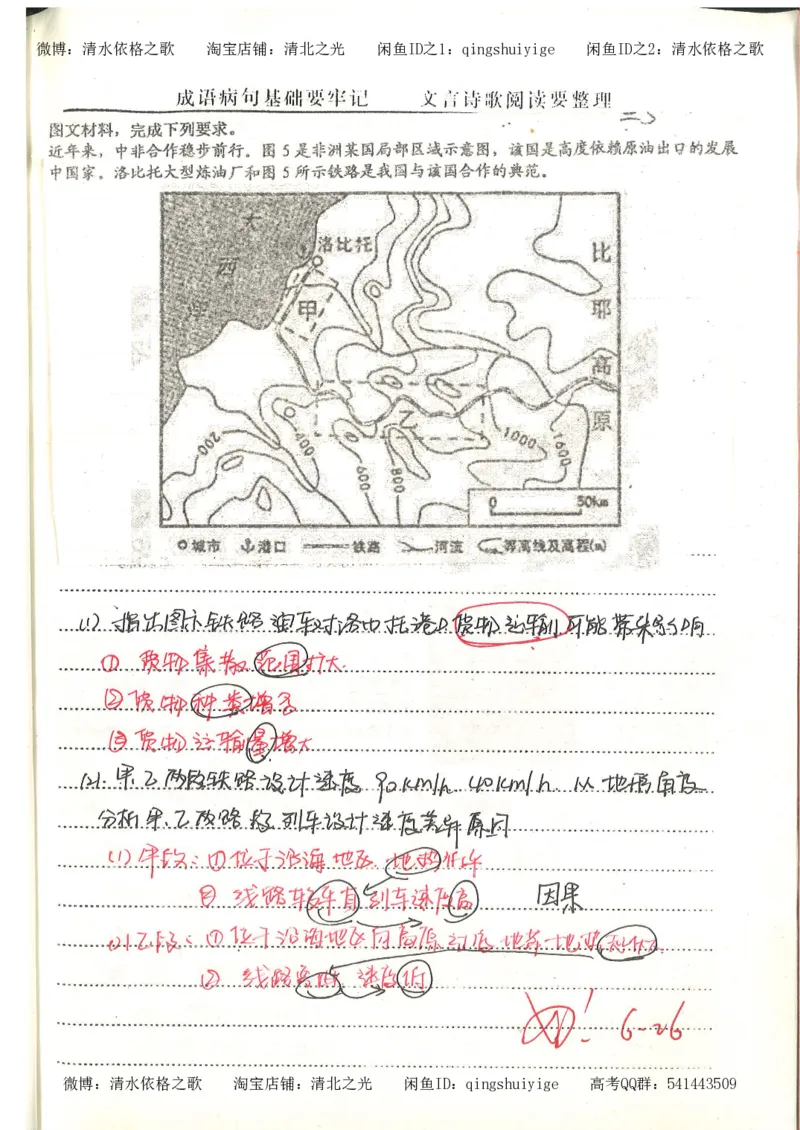 微博：清水依格之歌 淘宝店铺：清北之光 闲鱼ID之1：qingshuiyige 闲鱼ID之2：清水依格之歌
成语病句基础要牢记 文言诗歌阅读要整理
二、
图文材料，完成下列要求。
近年来，中非合作稳步前行。图5是非洲某国局部区域示意图，该国是高度依赖原油出口的发展
中国家。洛比托大型炼油厂和图5所示铁路是我国与该国合作的典范。
大
西
洋
洛比托
甲
比
耶
高
原
乙
200
400
600
800
1000
1600
0 50km
城市 港口 铁路 河流 等高线及高程(m)
(1) 指出图示铁路通车对洛比托港口货物运输可能带来的影响
① 货物集散范围扩大
② 货物种类增多
③ 货物运输量增大
(2). 甲、乙两段铁路设计速度 90km/h 40km/h 从地形角度
分析甲、乙两路段列车设计速度差异原因
(1) 甲段：①位于沿海地区 地势低平
② 线路较平直 列车速度高
因果
(2) 乙段：①位于沿海地区向高原过渡地带 地势起伏大
② 线路弯曲 速度低
6-26
微博：清水依格之歌 淘宝店铺：清北之光 闲鱼ID：qingshuiyige 高考QQ群：541443509